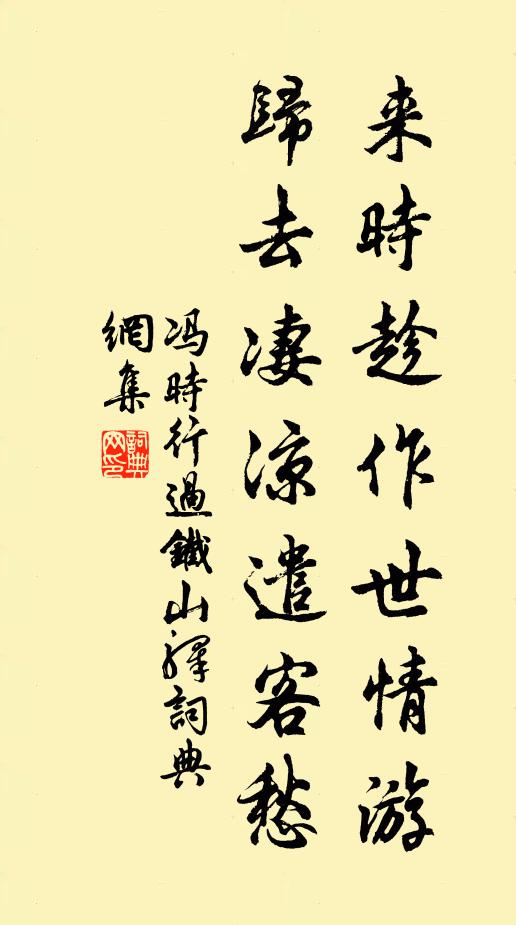 来時趁作世情游
歸去凄涼遣客愁
冯時行過鐵山驛詞典
網集
詞典网印